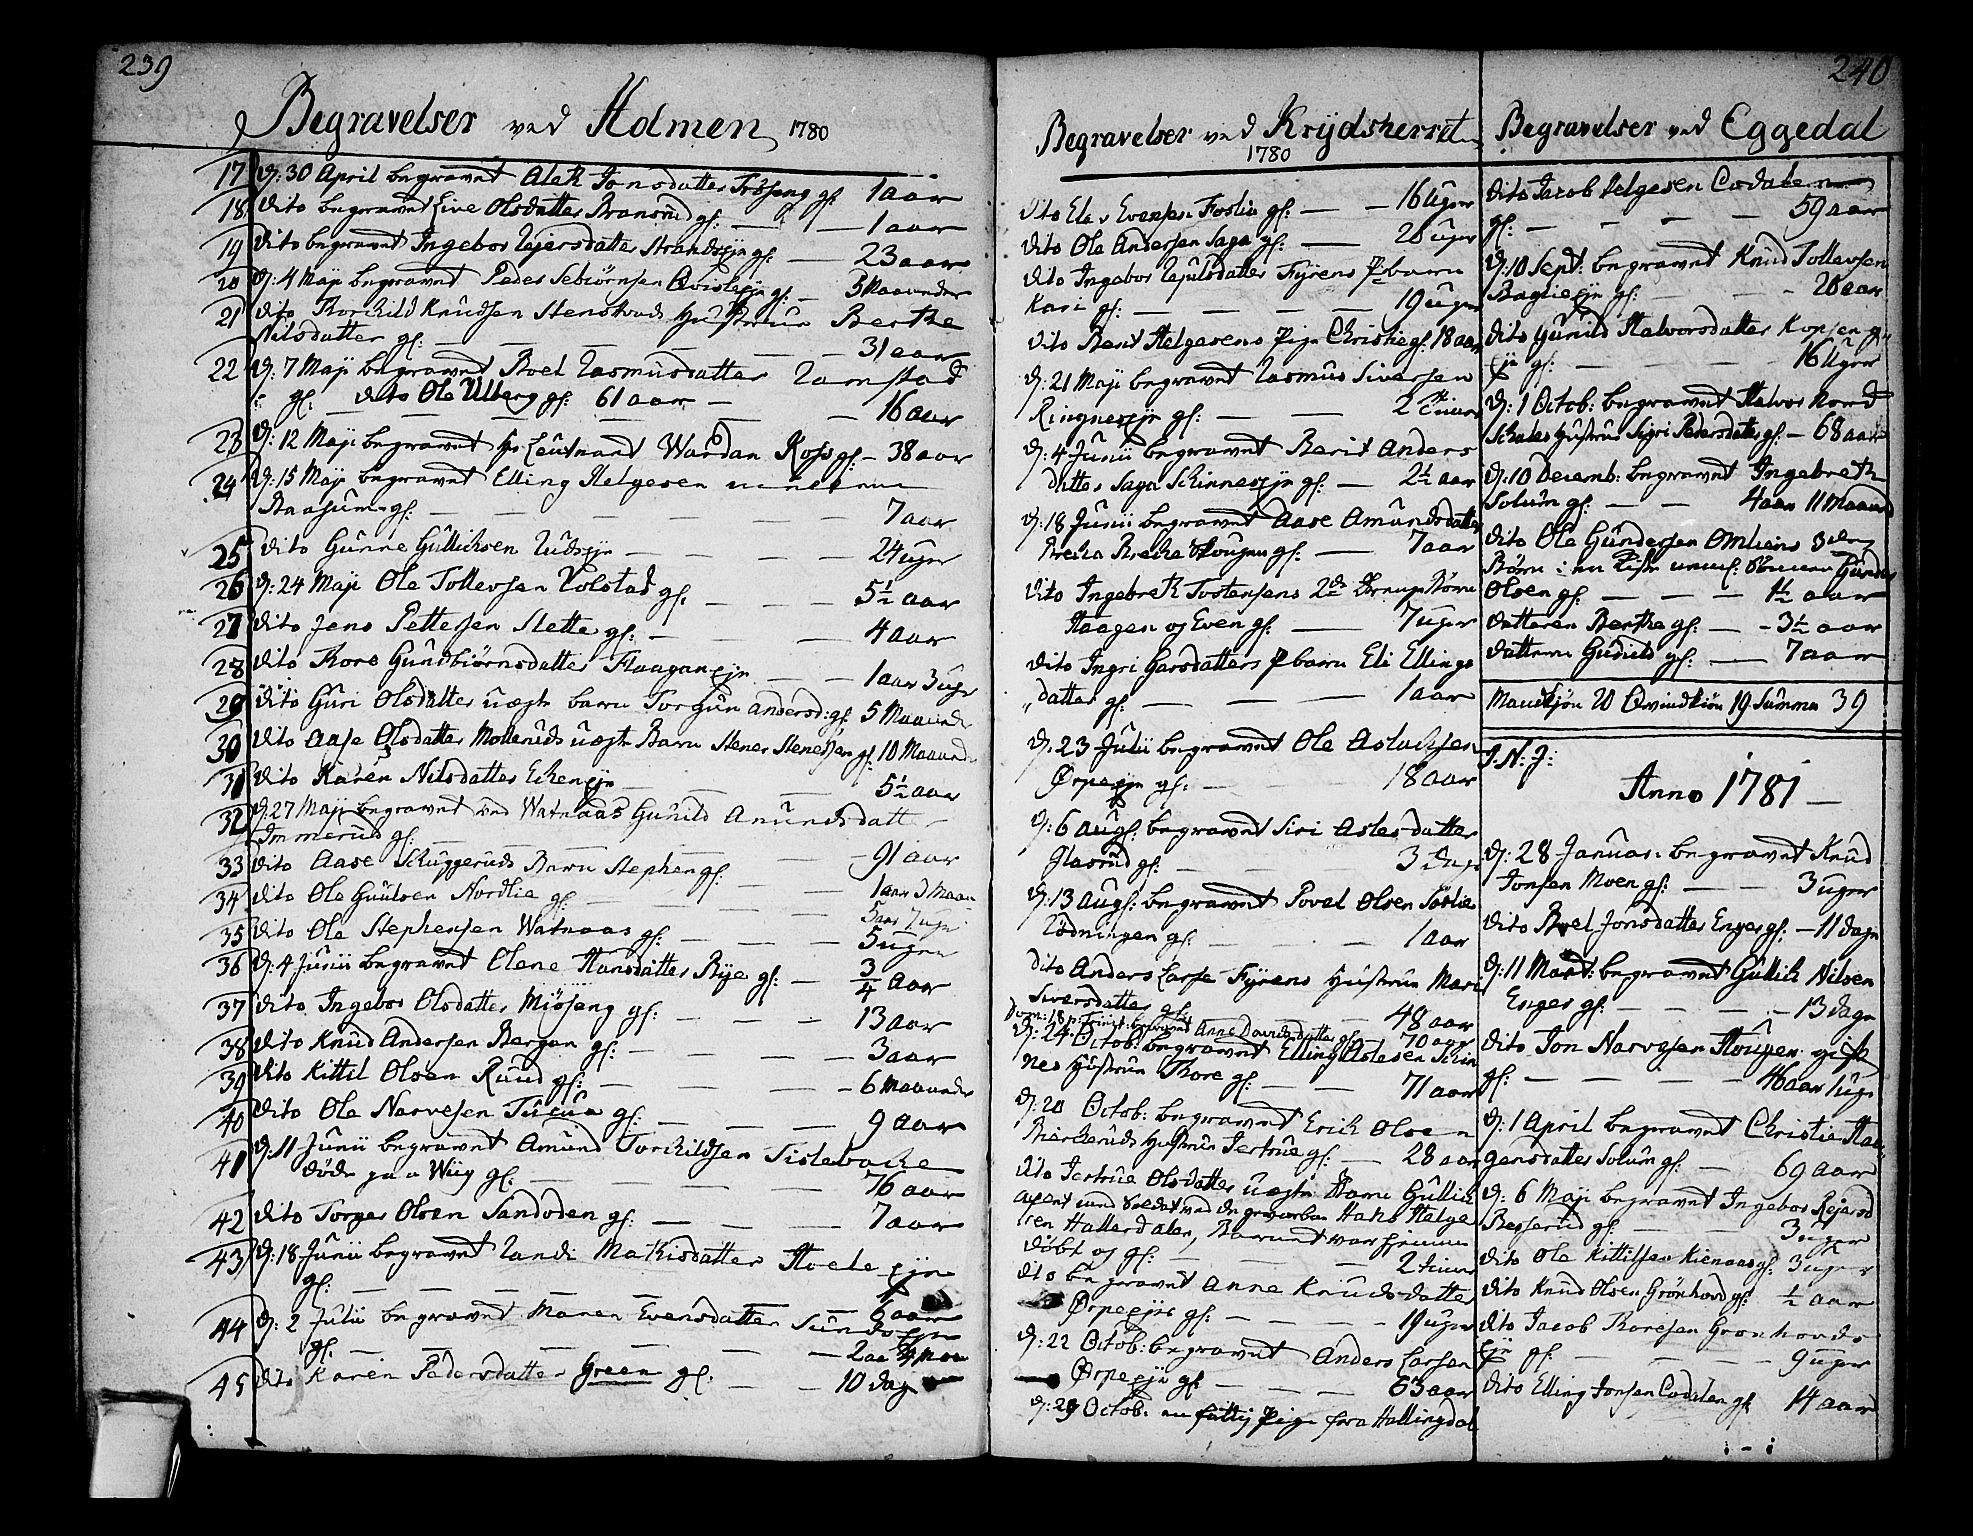 239
Begravelser ved Holmen 1780
17 d: 30 April begravet Aleth Jonsdatter Frøseng gl: 1 aar
18 dito begravet Live Olsdatter Bransrud gl: — — 1 aar
19 dito begravet Ingebor Rejersdatter Strandeje gl: — 23 aar
20 d: 4 Maji begravet Peder Sebiörnsen Qvisleeje gl: — 3 Maaneder
21 dito Torchild Knudsen Stensruds Hustrue Berthe
Nilsdatter gl: — — — — — — 31 aar
22 d: 7 Maji begravet Roel Rasmusdatter Ramstad
gl: dito Ole Ulberg gl: 61 aar — — 16 aar
23 d: 12 Maji begravet Hr Leutnant Wardan Koss gl: — 38 aar
24 d: 15 Maji begravet Elling Helgesen
Baasum gl: — — — — — 7 aar
25 dito Gunne Gulliksen Rudseje — — — — 24 uger
26 d: 24 Maji Ole Tollevsen Kolstad gl: — — — 5½ aar
27 dito Jens Pettersen Slette gl: — — — 4 aar
28 dito Thore Gundbiörnsdatter Flaaganeje — — 1 aar 3 uger
29 dito Guri Olsdatter uægte barn Torgun Andersd: gl: 5 Maaned
30 dito Aase Olsdatter Mollerud uægte Barn Stener Stenersen gl: 10 Maaned
31 dito Karen Nilsdatter Ekeneje — — — 5½ aar
32 d: 27 Maji begravet ved Watnaas Gunild Amundsdatt
Immerud gl: — — — — — 91 aar
33 dito Aase Skuggeruds Barn Stephen gl: — — 1 aar 3 Maan
34 dito Ole Guulsen Nordlie gl: — — — 5 aar 7 uger
35 dito Ole Stephensen Watnaas gl: — — — 5 uger
36 d: 4 Junii begravet Elene Hansdatter Rye gl: — ¾ aar
37 dito Ingebor Olsdatter Miøseng gl: — — — 13 aar
38 dito Knud Andersen Bergan gl: — — — 3 aar
39 dito Kittil Olsen Ruud gl: — — — 6 Maaneder
40 dito Ole Narvesen Turua gl: — — — 9 aar
41 d: 11 Junii begravet Amund Torkildsen Tislebache
døde paa Wiig gl: — — — — 76 aar
42 dito Torger Olsen Sandoden gl: — — — 7 aar
43 d: 18 Junii begravet Randi Mathisdatter Hoele eje
gl: — — — — — — — 6 aar
44 d: 2 Julii begravet Maren Evensdatter Sundseje
gl: — — — — — — — 2 aar 4 Maa
45 dito Karen Pedersdatter Green gl: — — 10 dag
240
Begravelser ved Krydsherret
1780
dito Elev Evensen Foslie gl: — — 16 Uger
dito Ole Andersen Saga gl: — — 26 uger
dito Ingebor Rejulsdatter Fyrens Pbarn
Kari gl: — — — — 19 uger
dito Berit Helgesens Pige Christie gl: 18 aar
d: 21 Maji begravet Rasmus Siversen
Ringneseje gl: — — — 2 Timer
d: 4 Junii begravet Berit Anders
datter Saga Skinneseje gl: — 2½ aar
d: 18 Junii begravet Aase Amundsdatter
Breka Breka Skougen gl: — 7 aar
dito Ingebreth Tostensens 2de Tvenage Børn
Haagen og Even gl: — 7 uger
dito Ingri Garsdatters Pbarn Eli Ellings
datter gl: — — — 1 aar
d: 23 Julii begravet Ole Aslachsen
Ørpeeje gl: — — 18 aar
d: 6 Augs: begravet Siri Aslesdatter
Glasrud gl: — — 3 dage
d: 13 Augs: begravet Povel Olsen Søelie
Rødningen gl: — — — 1 aar
dito Anders Larse Fyrens Hustrue Mari
Siversdatter gl: — — 48 aar
Dom: 18 p: Trinit: begravet Anne Davidsdatter gl: 70 aar
d: 24 Octob: begravet Elling Aslesen Skin
nes Hustrue Thore gl: — — 71 aar
d: 20 Octob: begravet Erik Olsen
Bierkeruds Hustrue Jertrue gl: — 28 aar
dito Jertrue Olsdatter uægte Barn Gullich
Halge
sen Hallerdalen, Barnet var hiemme
døbt og gl: — — — 2 timer
dito begravet Anne Knudsdatter
Ørpeeje gl: — — — 19 uger
d: 22 Octob: begravet Anders Larsen
Ørpeeje gl: — — — 63 aar
d: 29 Octob: en fattig Pige fra Hallingdal
Begravelser ved Eggedal
dito Jacob Helgesen Codalen
gl: — — — — 59 aar
d: 10 Sept: begravet Knud Tollevsen
Baglieeje gl: — — — 26 aar
dito Gunild Halvorsdatter Kopsengs
eje gl: — — — 16 Uger
d: 1 Octob: begravet Halvor Nord
Schales Hustrue Sigri Pedersdatter gl: — 68 aar
d: 10 Decemb: begravet Ingebreth
Solum gl: — — 4 aar 11 Maaned
dito Ole Gundersen Omliens 3de
Børn i en Kiste neml: Sönnen Gunder
Olsen gl: — — — 1½ aar
datteren Berthe gl: — — 3½ aar
datteren Gudild gl: — — 7 aar
Mandkjön 20 Qvindkiön 19 Summa 39
J. N. J:
Anno 1781 —
d: 28 Januar: begravet Knud
Jonsen Moen gl: — — 3 uger
dito Roel Jonsdatter Enger gl: — 11 dage
d: 11 Mart: begravet Gullik Nilsen
Enger gl: — — — 13 dage
dito Jon Narvesen Houpen gift
gl: — — — — 46 aar 1 uge
d: 1 April begravet Christie Haa
gensdatter Solum gl: — 69 aar
d: 6 Maji begravet Ingebor Rejersd
Besserud gl: — — — 3 uger
dito Ole Kittilsen Kienaas gl: 3 uger
dito Knud Olsen Grönhovd gl: ½ aar
dito Jacob Thoresen Grønhovds
eje gl: — — — — 9 uger
dito Elling Jonsen Codalen gl: 14 aar